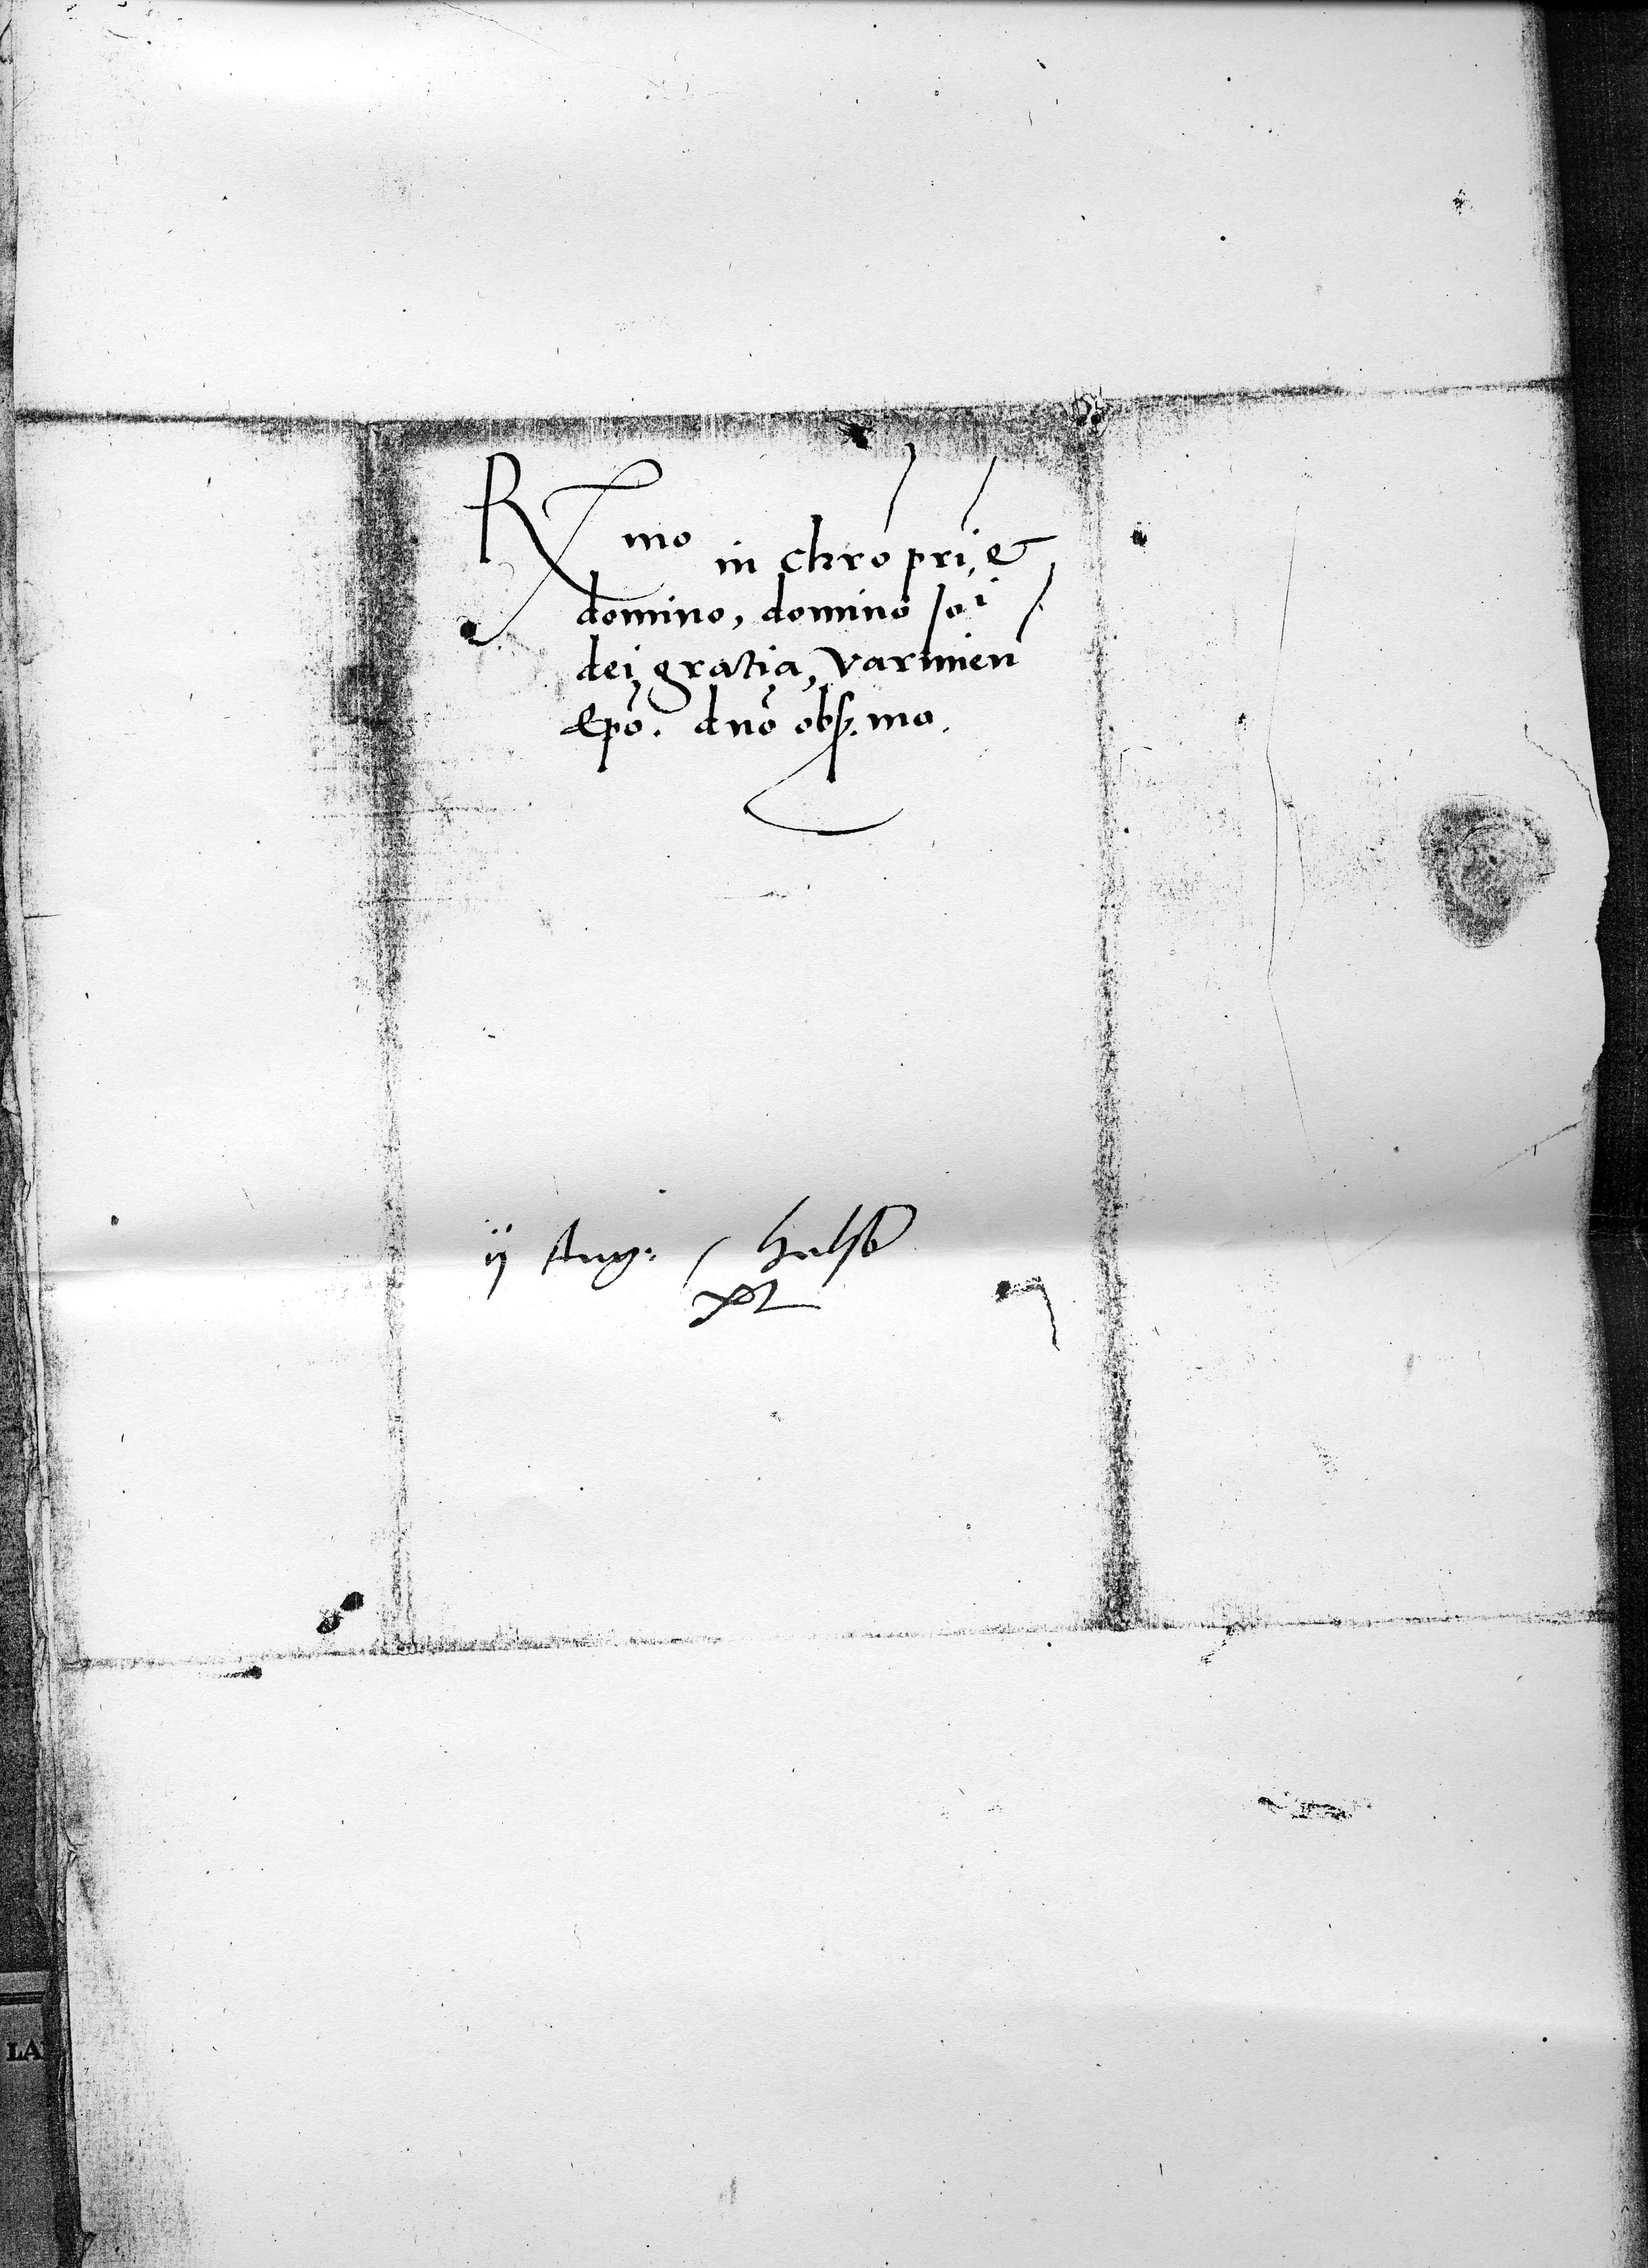 Rmo in chro pri, et
domino, domino Joi
dei gratia, Varmien
Epo. dno obs.mo.
ij Aug: / helsb
xl
LA